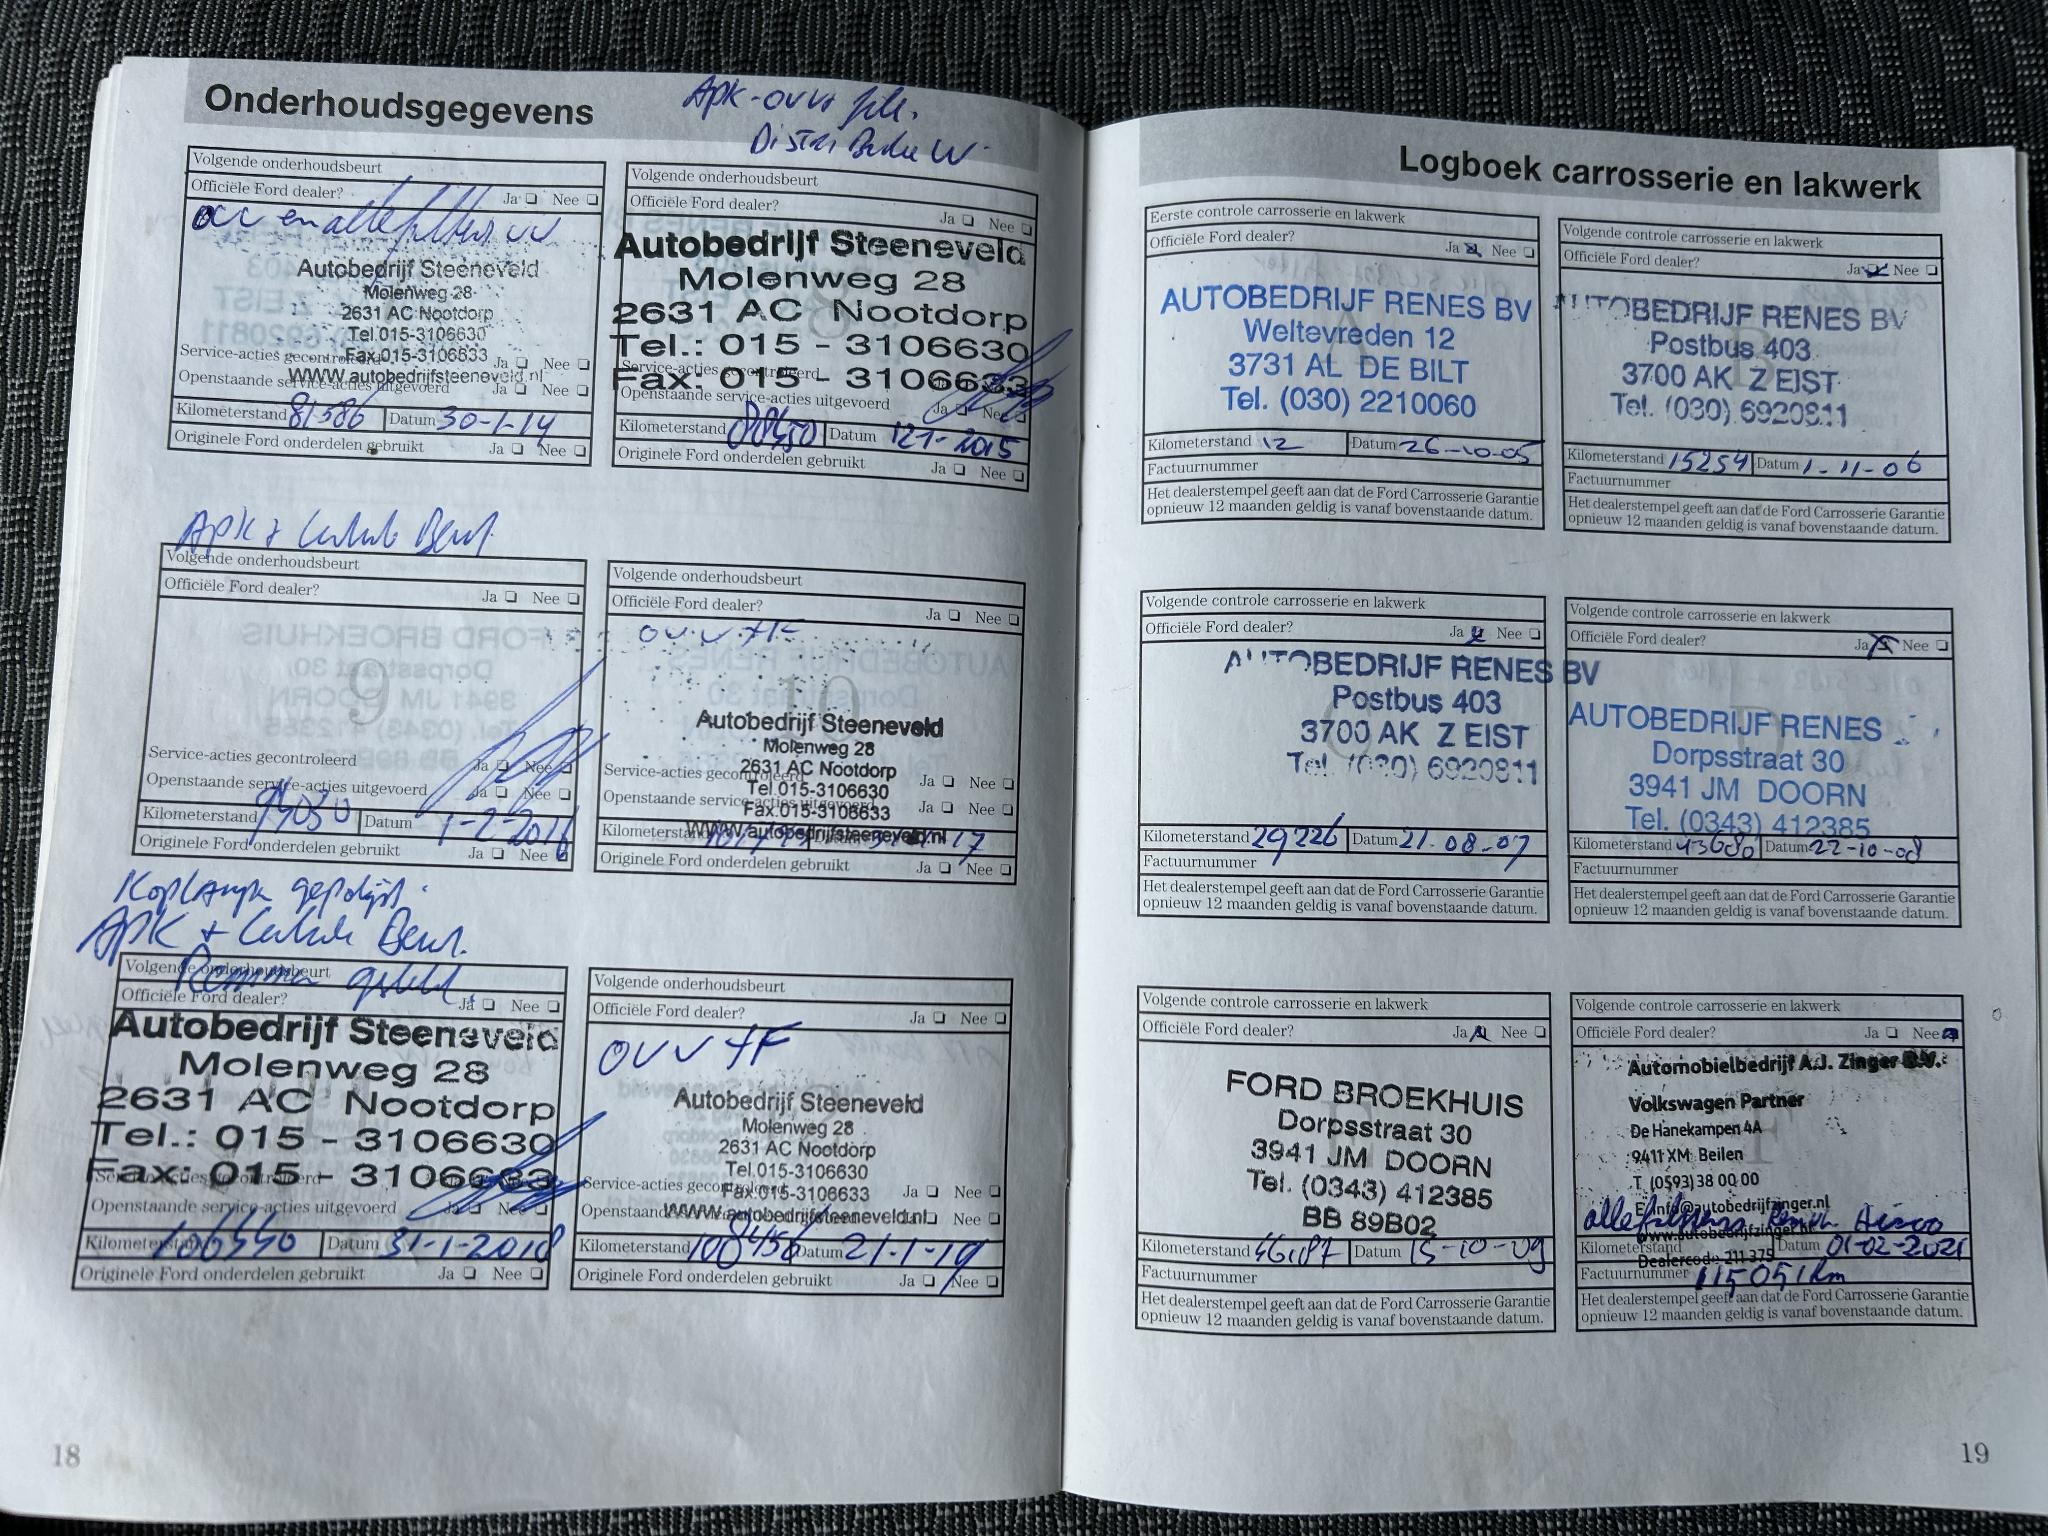 Onderhoudsgegevens
Apk-
Volgende onderhoudsbeurt
Officiële Ford dealer? Ja Nee
en alle filters
Autobedrijf Steeneveld
Molenweg 28
2631 AC Nootdorp
Tel.015-3106630
Fax.015-3106633
WWW.autobedrijfsteeneveld.nl
Service-acties gecontroleerd Ja Nee
Openstaande service-acties uitgevoerd Ja Nee
Kilometerstand 81586 Datum 30-1-14
Originele Ford onderdelen gebruikt Ja Nee
Volgende onderhoudsbeurt
Officiële Ford dealer? Ja Nee
Autobedrijf Steeneveld
Molenweg 28
2631 AC Nootdorp
Tel.: 015 - 3106630
Fax: 015 - 3106633
Service-acties gecontroleerd
Openstaande service-acties uitgevoerd Ja Nee
Kilometerstand 88450 Datum 2015
Originele Ford onderdelen gebruikt Ja Nee
APK + Beurt
Volgende onderhoudsbeurt
Officiële Ford dealer? Ja Nee
Service-acties gecontroleerd Ja Nee
Openstaande service-acties uitgevoerd Ja Nee
Kilometerstand 94030 Datum 1-2-2016
Originele Ford onderdelen gebruikt Ja Nee
Volgende onderhoudsbeurt
Officiële Ford dealer? Ja Nee
Autobedrijf Steeneveld
Molenweg 28
2631 AC Nootdorp
Tel.015-3106630
Fax.015-3106633
WWW.autobedrijfsteeneveld.nl
Service-acties gecontroleerd Ja Nee
Openstaande service-acties uitgevoerd Ja Nee
Kilometerstand 17
Originele Ford onderdelen gebruikt Ja Nee
Koplamp gepolijst.
APK + Beurt.
Remmen gesteld.
Volgende onderhoudsbeurt
Officiële Ford dealer? Ja Nee
Autobedrijf Steeneveld
Molenweg 28
2631 AC Nootdorp
Tel.: 015 - 3106630
Fax: 015 - 3106633
Service-acties gecontroleerd
Openstaande service-acties uitgevoerd Ja Nee
Kilometerstand 106440 Datum 31-1-2018
Originele Ford onderdelen gebruikt Ja Nee
Volgende onderhoudsbeurt
Officiële Ford dealer? Ja Nee
OVV+F
Autobedrijf Steeneveld
Molenweg 28
2631 AC Nootdorp
Tel.015-3106630
Fax.015-3106633
WWW.autobedrijfsteeneveld.nl
Service-acties gecontroleerd Ja Nee
Openstaande
Kilometerstand 108456 Datum 21-1-19
Originele Ford onderdelen gebruikt Ja Nee
18
Logboek carrosserie en lakwerk
Eerste controle carrosserie en lakwerk
Officiële Ford dealer? Ja Nee
AUTOBEDRIJF RENES BV
Weltevreden 12
3731 AL DE BILT
Tel. (030) 2210060
Kilometerstand 12 Datum 26-10-05
Factuurnummer
Het dealerstempel geeft aan dat de Ford Carrosserie Garantie
opnieuw 12 maanden geldig is vanaf bovenstaande datum.
Volgende controle carrosserie en lakwerk
Officiële Ford dealer? Ja Nee
AUTOBEDRIJF RENES BV
Postbus 403
3700 AK ZEIST
Tel. (030) 6920811
Kilometerstand 15254 Datum 1-11-06
Factuurnummer
Het dealerstempel geeft aan dat de Ford Carrosserie Garantie
opnieuw 12 maanden geldig is vanaf bovenstaande datum.
Volgende controle carrosserie en lakwerk
Officiële Ford dealer? Ja Nee
AUTOBEDRIJF RENES BV
Postbus 403
3700 AK ZEIST
Tel. (030) 6920811
Kilometerstand 29226 Datum 21-08-07
Factuurnummer
Het dealerstempel geeft aan dat de Ford Carrosserie Garantie
opnieuw 12 maanden geldig is vanaf bovenstaande datum.
Volgende controle carrosserie en lakwerk
Officiële Ford dealer? Ja Nee
AUTOBEDRIJF RENES
Dorpsstraat 30
3941 JM DOORN
Tel. (0343) 412385
Kilometerstand 43680 Datum 22-10-08
Factuurnummer
Het dealerstempel geeft aan dat de Ford Carrosserie Garantie
opnieuw 12 maanden geldig is vanaf bovenstaande datum.
Volgende controle carrosserie en lakwerk
Officiële Ford dealer? Ja Nee
FORD BROEKHUIS
Dorpsstraat 30
3941 JM DOORN
Tel. (0343) 412385
BB 89B02
Kilometerstand 46187 Datum 15-10-09
Factuurnummer
Het dealerstempel geeft aan dat de Ford Carrosserie Garantie
opnieuw 12 maanden geldig is vanaf bovenstaande datum.
Volgende controle carrosserie en lakwerk
Officiële Ford dealer? Ja Nee
Automobielbedrijf A.J. Zinger B.V.
Volkswagen Partner
De Hanekampen 4A
9411 XM Beilen
T (0593) 38 00 00
E info@autobedrijfzinger.nl
alle filters Airco
www.autobedrijfzinger.nl
Kilometerstand Datum 01-02-2021
Dealercode 211 375
Factuurnummer 115051km
Het dealerstempel geeft aan dat de Ford Carrosserie Garantie
opnieuw 12 maanden geldig is vanaf bovenstaande datum.
19